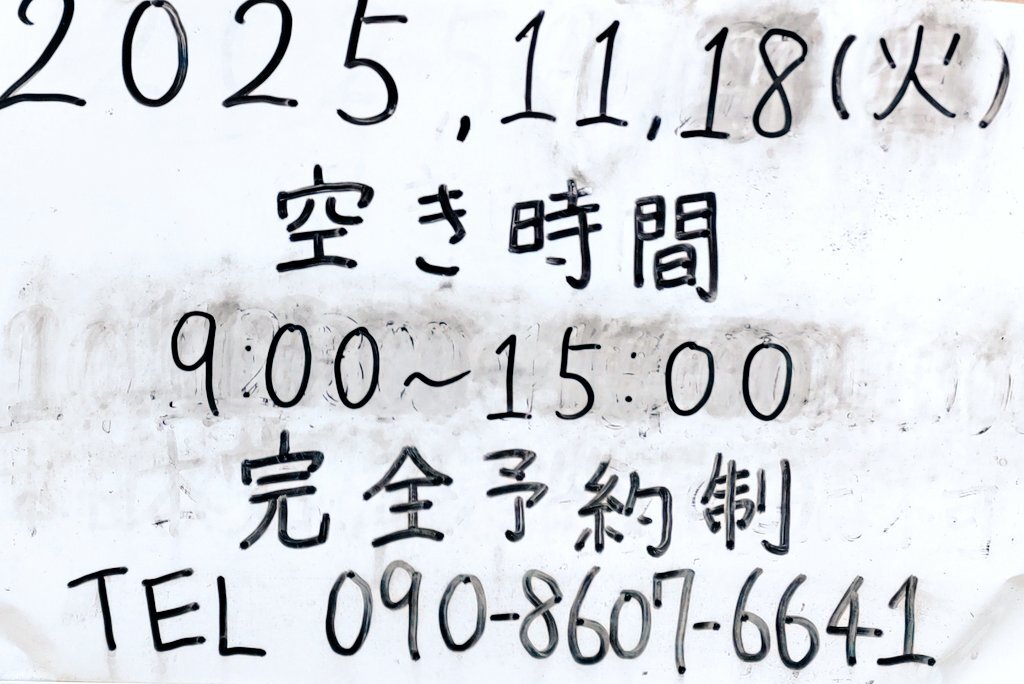 2025,11,18(火)
空き時間
9:00~15:00
完全予約制
TEL 090-8607-6641